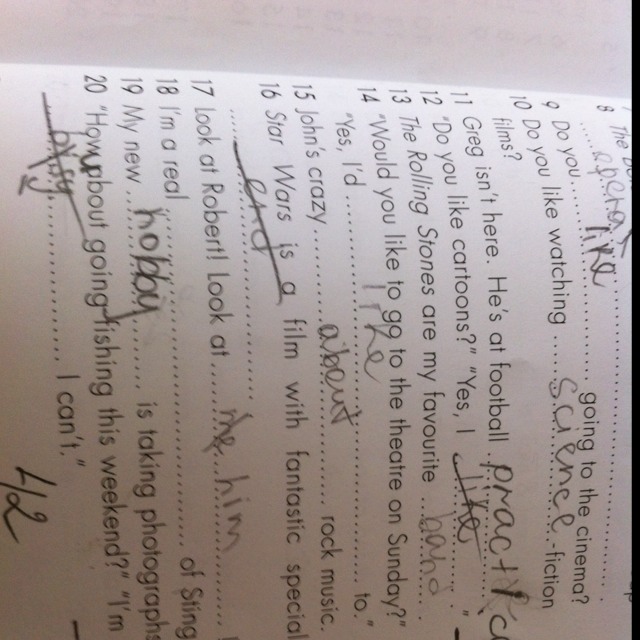 8 The
opera
9 Do you like going to the cinema?
10 Do you like watching science fiction
films?
Greg isn't here. He's at football practice
11 "Do you like cartoons?" "Yes, I like."
12 The Rolling Stones are my favourite band
13 "Would you like to go to the theatre on Sunday?"
14 "Yes, I'd like to."
15 John's crazy about rock music.
16 Star Wars is a film with fantastic special
17 Look at Robert! Look at him
18 I'm a real of Sting
19 My new hobby is taking photographs
20 "How about going fishing this weekend?" "I'm
I can't."